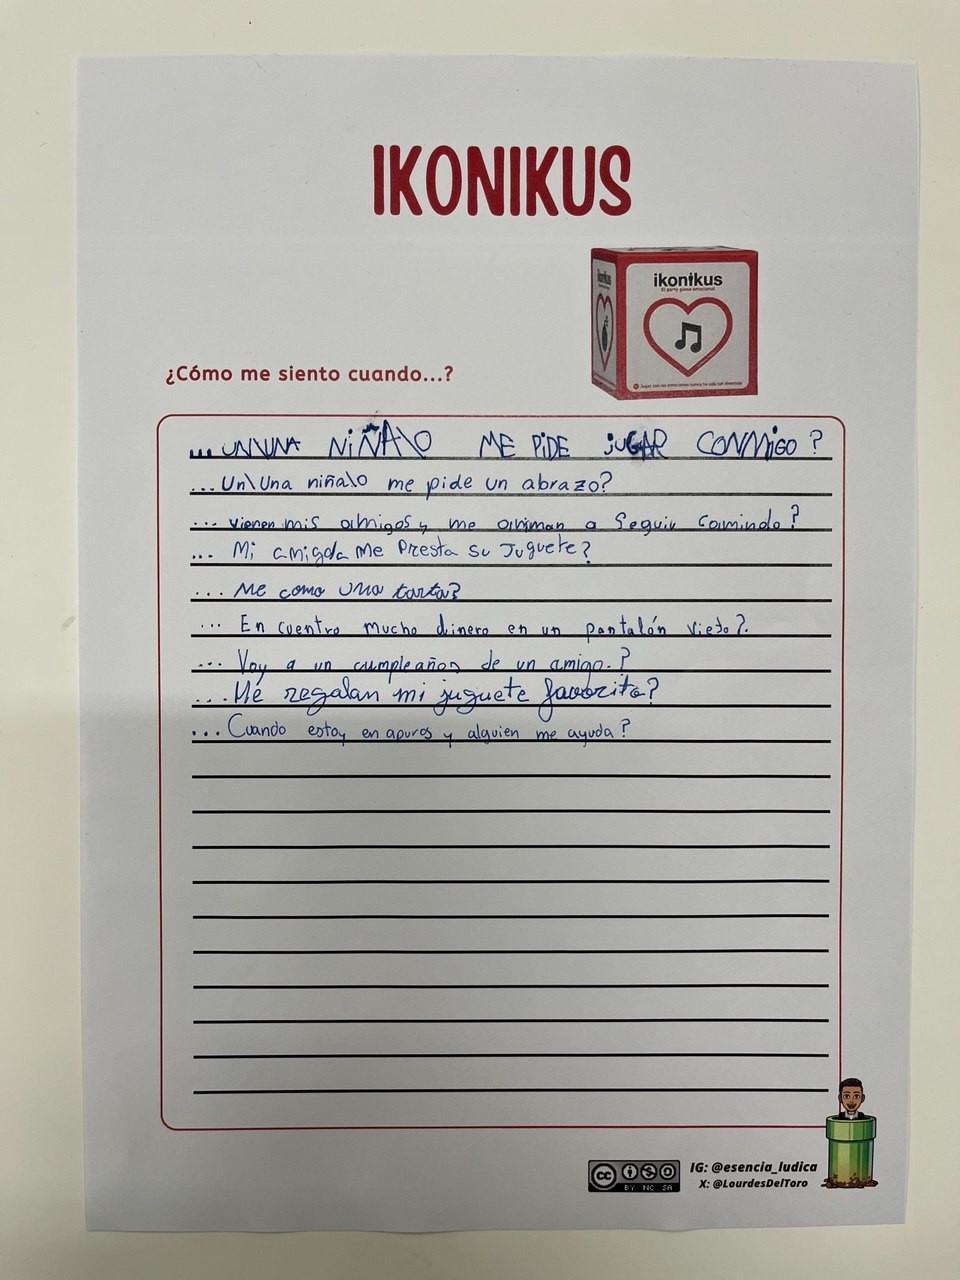 IKONIKUS
ikonikus
El party game emocional
¿Cómo me siento cuando...?
... UN\UNA NiÑA\O ME PiDE JUGAR CONMiGO ?
... Un\Una niña\o me pide un abrazo?
... vienen mis amigos y me animan a Seguir Caminando?
... Mi amigo/a Me Presta su Juguete?
... Me como una tarta?
... En cuentro mucho dinero en un pantalón viejo?.
... Voy a un cumpleaños de un amigo.?
... Me regalan mi juguete favorito?
... Cuando estoy en apuros y alguien me ayuda?
cc BY NC SA
IG: @esencia_ludica
X: @LourdesDelToro